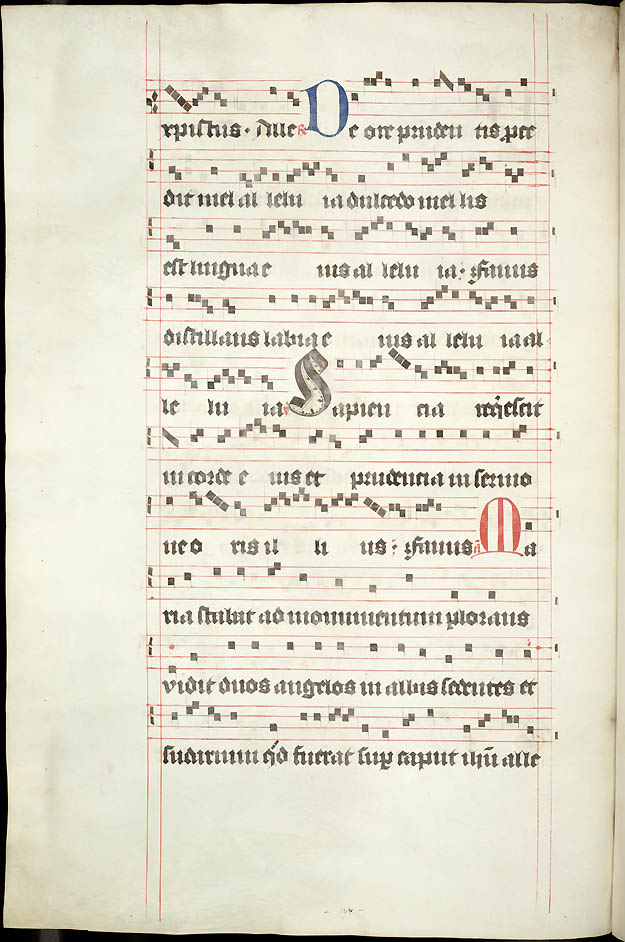 xpistus · Alle R De ore pruden tis pce
dit mel al lelu ia dulcedo mellis
est linguae ius al lelu ia : Fauus
distillans labia e ius al lelu ia al
le lu ia Sapien cia reqescit
in corde e ius et prudencia in sermo
ne o ris il li us : Fauus a Ma
ria stabat ad monumentum plorans
vidit duos angelos in albis sedentes et
sudarium qd fuerat sup caput ihu alle